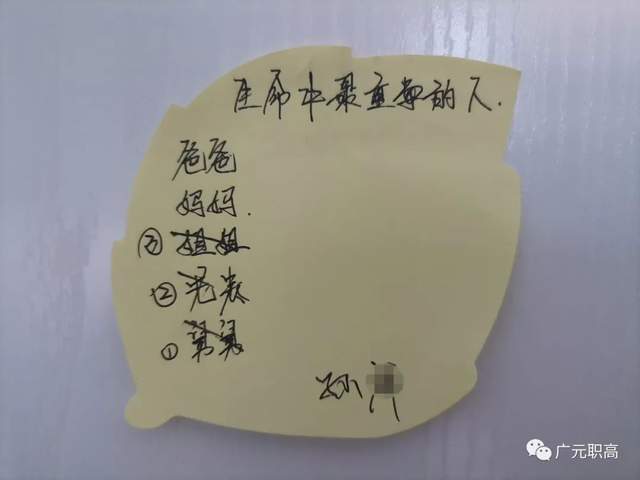 生命中最重要的人.
爸爸
妈妈.
③ 姐姐
②
① 舅舅
孙
广元职高